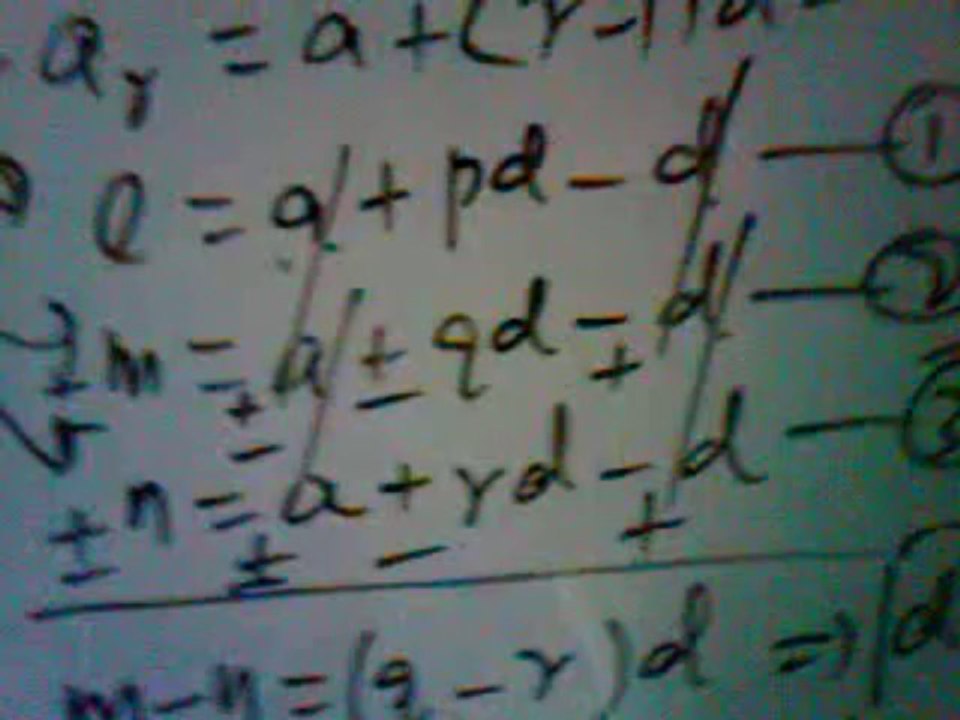 aᵣ = a + (r-1)d
l = a + pd - d — ①
m = a + qd - d — ②
n = a + rd - d — ③
m-n = (q - r)d ⇒ d